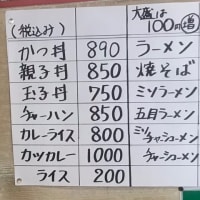 (税込み)
大盛は
100円増
かつ丼 890 ラーメン
親子丼 850 焼そば
玉子丼 750 ミソラーメン
チャーハン 850 五目ラーメン
カレーライス 800 ミソチャーシューメン
カツカレー 1000 チャーシューメン
ライス 200